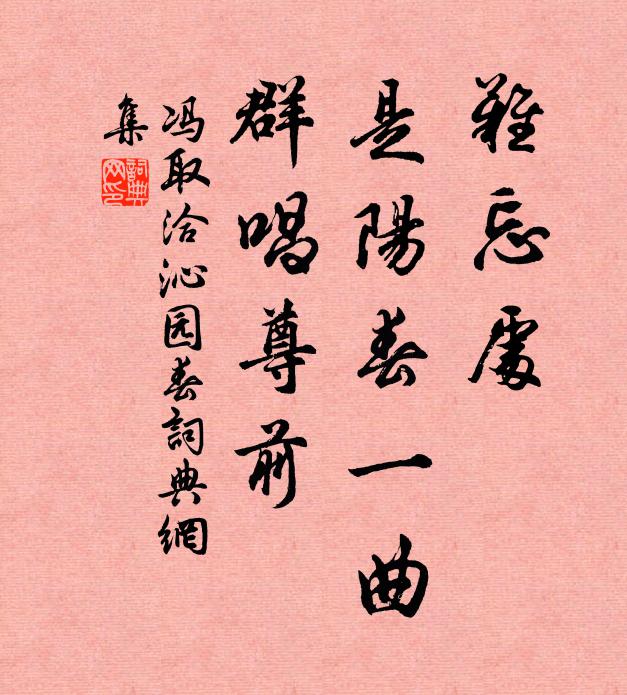 難忘處
是陽春一曲
群唱尊前
冯取洽沁园春詞典網
集
詞典
网印